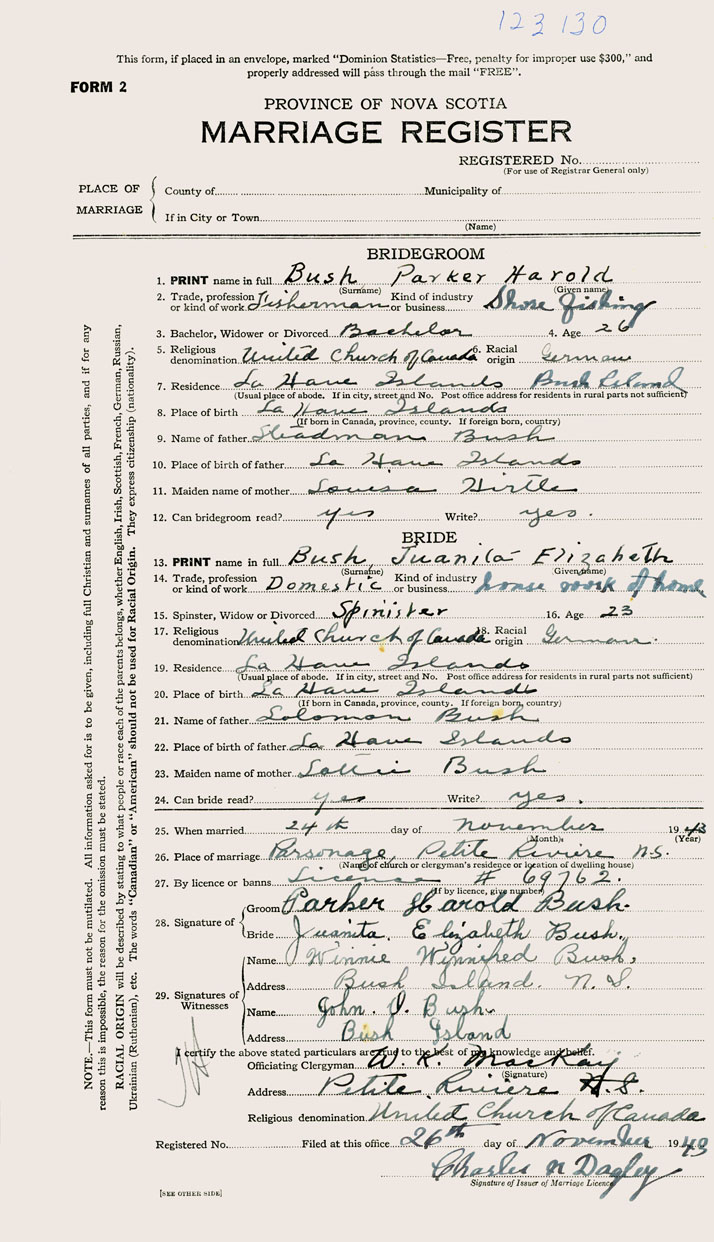 123 130
This form, if placed in an envelope, marked "Dominion Statistics—Free, penalty for improper use $300," and
properly addressed will pass through the mail "FREE".
FORM 2
PROVINCE OF NOVA SCOTIA
MARRIAGE REGISTER
REGISTERED No.
(For use of Registrar General only)
PLACE OF MARRIAGE
County of Municipality of
If in City or Town
(Name)
BRIDEGROOM
1. PRINT name in full Bush Parker Harold
(Surname) (Given name)
2. Trade, profession or kind of work Fisherman Kind of industry or business Shore fishing
3. Bachelor, Widower or Divorced Bachelor 4. Age 26
5. Religious denomination United Church of Canada 6. Racial origin German
7. Residence La Have Islands Bush Island
(Usual place of abode. If in city, street and No. Post office address for residents in rural parts not sufficient)
8. Place of birth La Have Islands
(If born in Canada, province, county. If foreign born, country)
9. Name of father Steadman Bush
10. Place of birth of father La Have Islands
11. Maiden name of mother Louisa Hirtle
12. Can bridegroom read? yes Write? yes.
BRIDE
13. PRINT name in full Bush, Juanita Elizabeth
(Surname) Given name
14. Trade, profession or kind of work Domestic Kind of industry or business house work at home
15. Spinster, Widow or Divorced Spinister 16. Age 23
17. Religious denomination United Church of Canada 18. Racial origin German.
19. Residence La Have Islands
(Usual place of abode. If in city, street and No. Post office address for residents in rural parts not sufficient)
20. Place of birth La Have Islands
(If born in Canada, province, county. If foreign born, country)
21. Name of father Solomon Bush
22. Place of birth of father La Have Islands
23. Maiden name of mother Lottie Bush
24. Can bride read? yes Write? yes.
25. When married 24th day of November 1943
(Month) (Year)
26. Place of marriage Parsonage, Petite Riviere N.S.
(Name of church or clergyman's residence or location of dwelling house)
27. By licence or banns License # 69762.
(If by licence, give number)
28. Signature of
Groom Parker Harold Bush.
Bride Juanita. Elizabeth Bush.
29. Signatures of Witnesses
Name Winnie Winnifred Bush,
Address Bush Island. N.S.
Name John. O. Bush.
Address Bush Island
I certify the above stated particulars are true to the best of my knowledge and belief.
Officiating Clergyman W. K. MacKay
(Signature)
Address Petite Riviere N.S.
Religious denomination United Church of Canada
Registered No. Filed at this office 26th day of November 1943
Charles N Dagley
Signature of Issuer of Marriage Licence
[SEE OTHER SIDE]
NOTE.—This form must not be mutilated. All information asked for is to be given, including full Christian and surnames of all parties, and if for any
reason this is impossible, the reason for the omission must be stated.
RACIAL ORIGIN will be described by stating to what people or race each of the parents belongs, whether English, Irish, Scottish, French, German, Russian,
Ukrainian (Ruthenian), etc. The words "Canadian" or "American" should not be used for Racial Origin. They express citizenship (nationality).